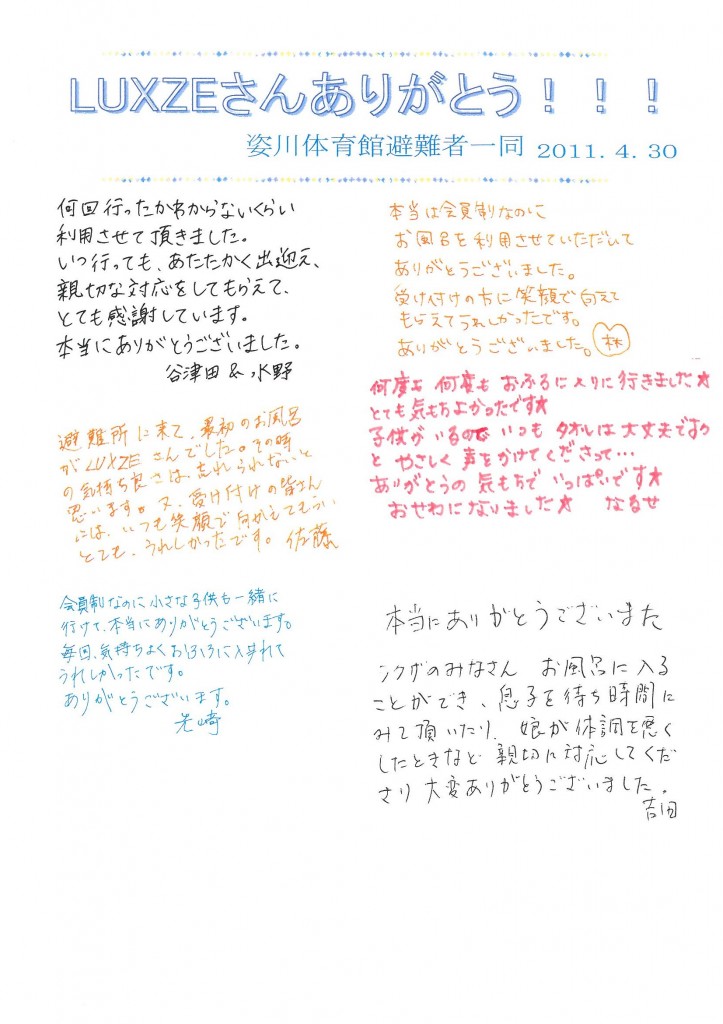 LUXZEさんありがとう！！！
姿川体育館避難者一同 2011.4.30
何回行ったかわからないくらい
利用させて頂きました。
いつ行っても、あたたかく出迎え、
親切な対応をしてもらえて、
とても感謝しています。
本当にありがとうございました。
谷津田 & 水野
本当は会員制なのに
お風呂を利用させていただいて
ありがとうございました。
受け付けの方に笑顔で向えて
もらえてうれしかったです。
ありがとうございました。 林
何度も 何度も おふろに入りに行きました★
とても気もちよかったです★
子供がいるので いつも タオルは大丈夫ですか
と やさしく 声をかけてくださって…
ありがとうの 気もちで いっぱいです★
おせわになりました★ なるせ
避難所に来て、最初のお風呂
がLUXZEさんでした。その時
の気持ち良さは、忘れられないと
思います。又、受け付けの皆さん
には、いつも笑顔で向かえてもらい
とても、うれしかったです。 佐藤
会員制なのに小さな子供も一緒に
行けて、本当にありがとうございます。
毎回、気持ちよくおふろに入れて
うれしかったです。
ありがとうございます。
本当にありがとうございまた
ンクザのみなさん お風呂に入る
ことができ、息子を待ち時間に
みて頂いたり、娘が体調を悪く
したときなど 親切に対応してくだ
さり 大変ありがとうございました。
吉田